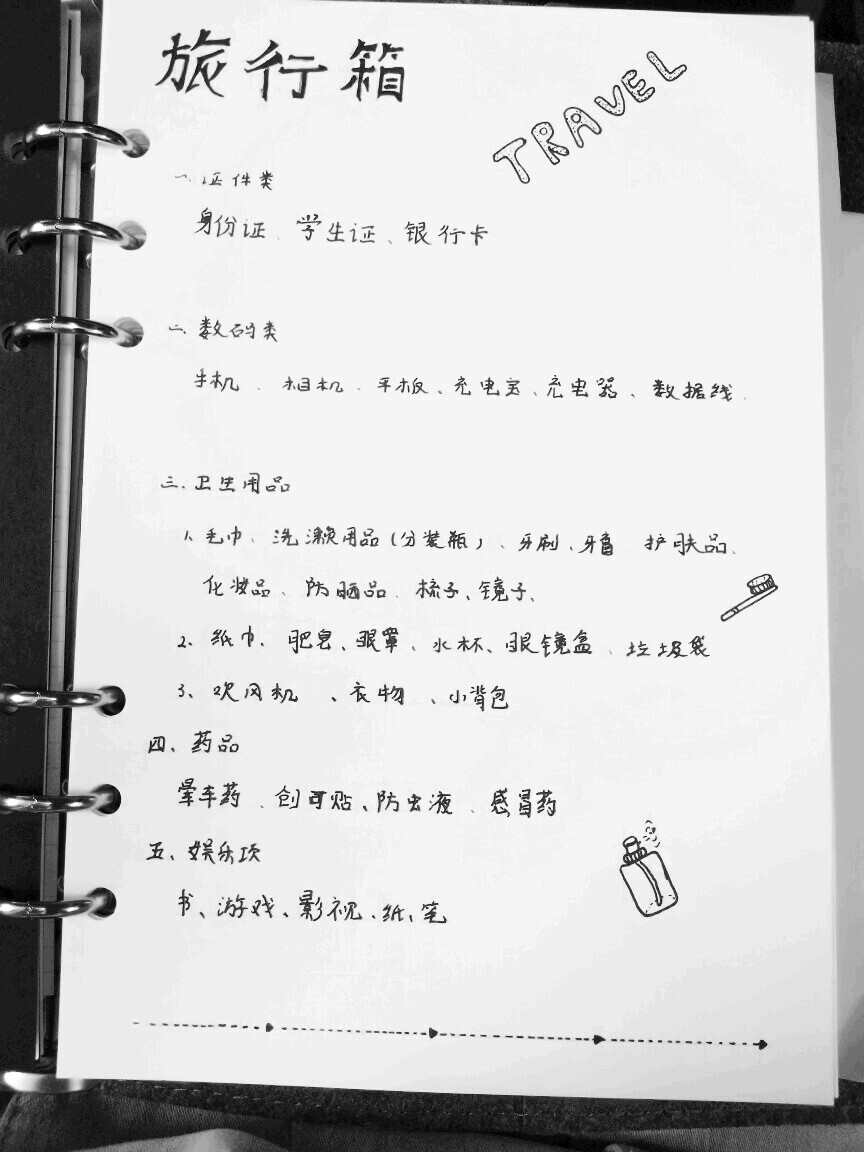 旅行箱
TRAVEL
一.证件类
身份证、学生证、银行卡
二.数码类
手机、相机、平板、充电宝、充电器、数据线.
三.卫生用品
1.毛巾、洗漱用品(分装瓶)、牙刷、牙膏 护肤品、
化妆品、防晒品、梳子、镜子、
2、纸巾、肥皂、眼罩、水杯、眼镜盒、垃圾袋
3、吹风机、衣物、小背包
四、药品
晕车药、创可贴、防虫液、感冒药
五、娱乐项
书、游戏、影视、纸、笔